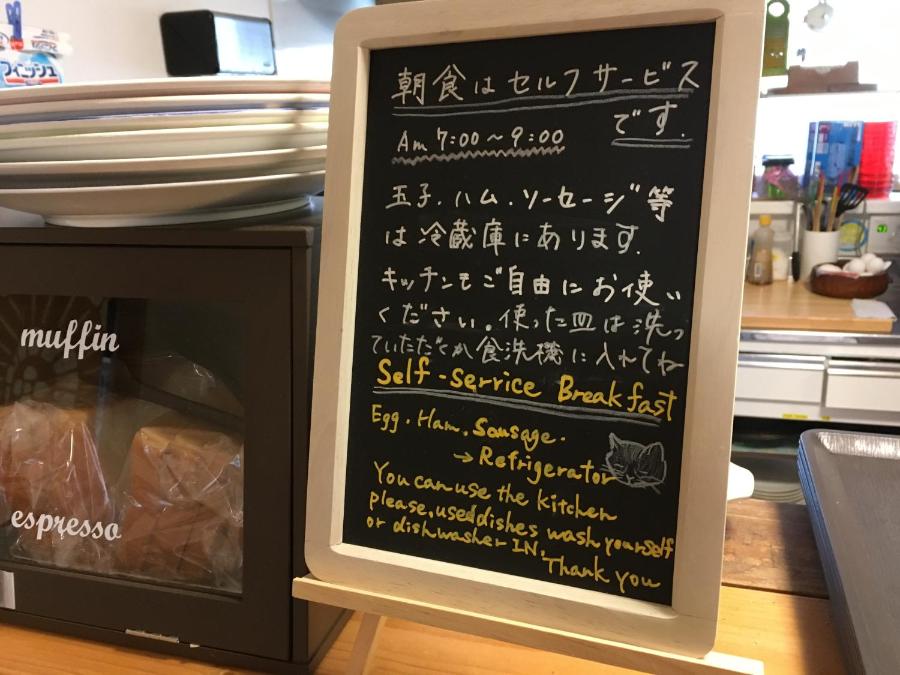 フィニッシュ
朝食はセルフサービス
です.
Am 7:00〜9:00
玉子.ハム.ソーセージ等
は冷蔵庫にあります.
キッチンもご自由にお使い
ください。使った皿は洗っ
ていただくか食洗機に入れてね
Self-service Breakfast
Egg. Ham. Sousage.
→Refrigerator
You can use the kitchen
please, used dishes wash yourself
or dishwasher IN.
Thank you
muffin
espresso